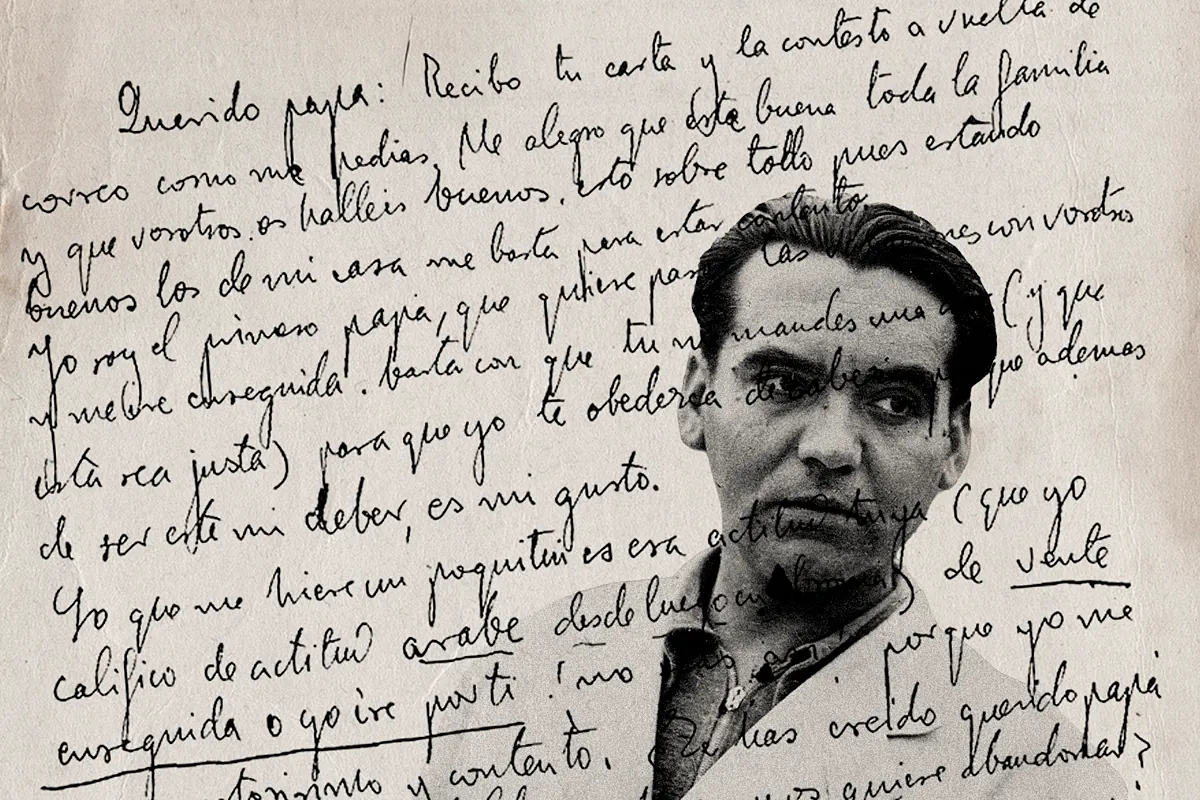 Querido papa: Recibo tu carta y la contesto a vuelta de
correo como me pedias. Me alegro que este buena toda la familia
y que vosotros os halleis buenos, esto sobre todo pues estando
buenos los de mi casa me basta para estar contento.
Yo soy el primero papa, que quiere pasar las con vosotros
y me ire enseguida. basta con que tu mandes una (y que
esta sea justa) para que yo te obedezca que ademas
de ser este mi deber, es mi gusto.
Lo que me hiere un poquitin es esa actitud tuya (que yo
califico de actitud arabe desde luego en) de vente
enseguida o yo ire por ti ! no seas asi porque yo me
y contento. ¿Te has creido querido papá
quiere abandonar?